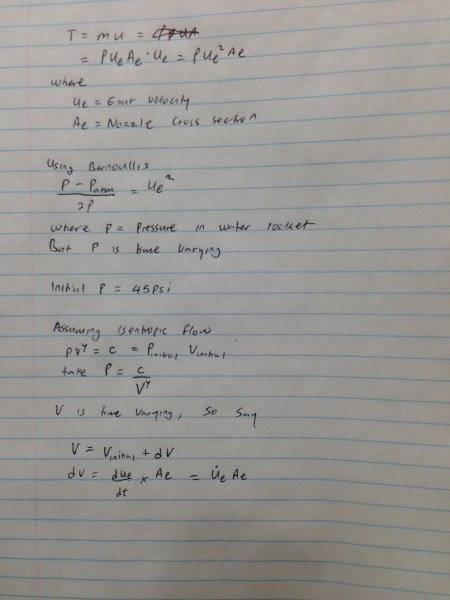 T = mu = ρuA
= ρUeAe · Ue = ρUe²Ae
where
Ue = Exit velocity
Ae = Nozzle Cross section
Using Bernoullis
P - Patm / 2ρ = Ue²
where P = Pressure in water rocket
But P is time varying
Initial P = 45psi
Assuming isentropic flow
pvγ = c = Pinitial Vinitial
take P = c / Vγ
V is time varying, so say
V = Vinitial + dV
dV = due/dt × Ae = u̇e Ae